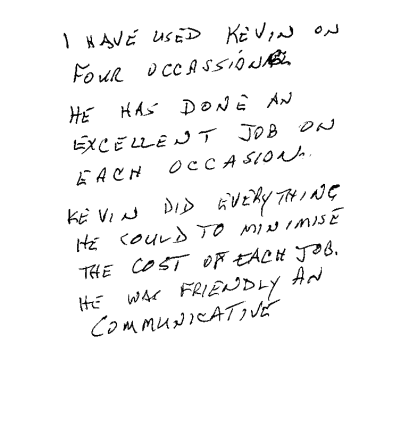 I HAVE USED KEVIN ON
FOUR OCCASSIONS
HE HAS DONE AN
EXCELLENT JOB ON
EACH OCCASION.
KEVIN DID EVERYTHING
HE COULD TO MINIMISE
THE COST OF EACH JOB.
HE WAS FRIENDLY AN
COMMUNICATIVE